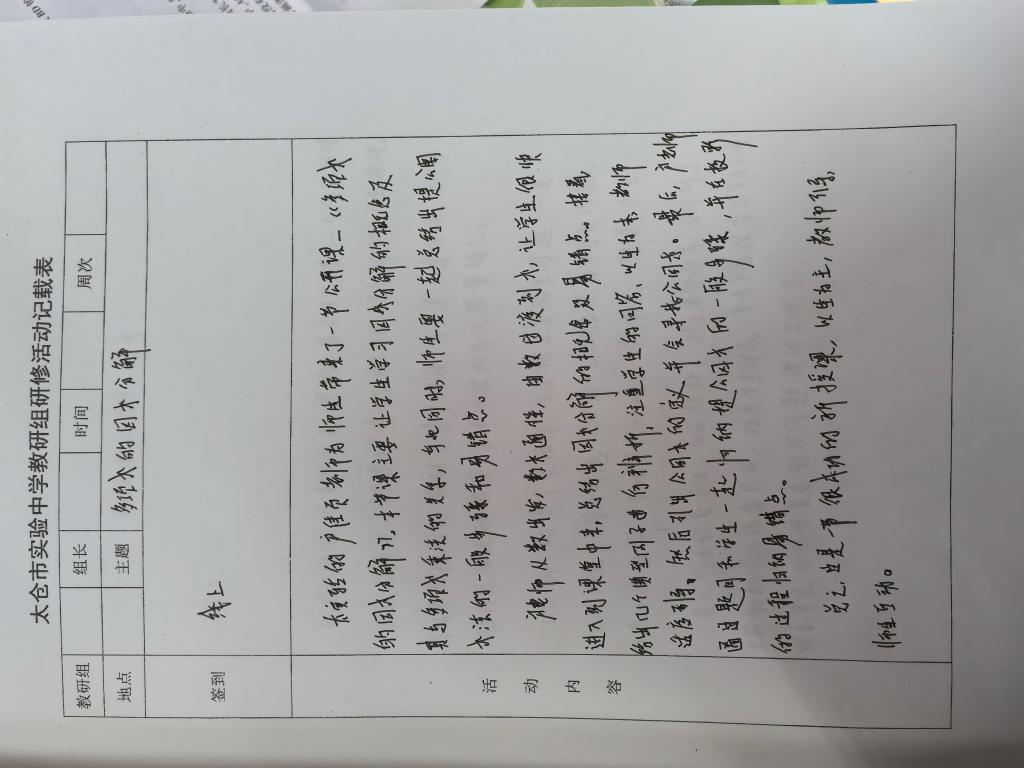 太仓市实验中学教研组研修活动记载表
教研组 组长 时间 周次
地点 主题 多项式的因式分解
签到 线上
活动内容
老师为师生带来了一节公开课——《多项式
的因式分解》,本节课主要让学生学习因式分解的概念及
其与多项式乘法的关系,与此同时,师生要一起总结出提公因
式法的一般步骤和易错点。
老师从数出发,数式通性,由数过渡到式,让学生
进入到课堂中来,总结出因式分解的概念及易错点。接着
给出几个典型例子进行辨析,注重学生的回答、以生为主 教师
适度引导。然后引出公因式的定义并会寻找公因式。最后,严老师
通过题目和学生一起归纳提公因式的一般步骤,并在投影
的过程归纳易错点。
总之,这是一节很成功的新授课,以生为主,教师
师生互动。